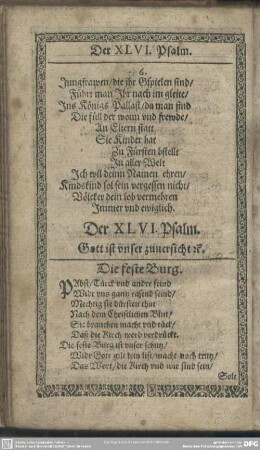 Der XLVI. Psalm.
6.
Jungfrawen/ die ihr Gspielen sind/
Führt man Ihr nach im gleite/
Ins Königs Pallast/ da man find
Die füll der wonn vnd frewde/
An Eltern statt
Sie Kinder hat
Zu Fürsten bstellt
In aller Welt
Ich wil deinn Namen ehren/
Kindskind sol sein vergessen nicht/
Völcker dein lob vermehren
Immer vnd ewiglich.
Der XLVI. Psalm.
Gott ist vnser zuuersicht ꝛc.
Die feste Burg.
PAbst/ Türck vnd andre feind
Widr vns gantz rasend seind/
Mechtig sie dürsten thut
Nach dem Christlichen Blut/
Sie brauchen macht vnd tück/
Daß die Kirch werd verdrückt.
Die feste Burg ist vnser schutz/
Widr Gott gilt kein list/ macht noch trutz/
Das Wort/ die Kirch vnd wir sind sein/
Solt
DFG